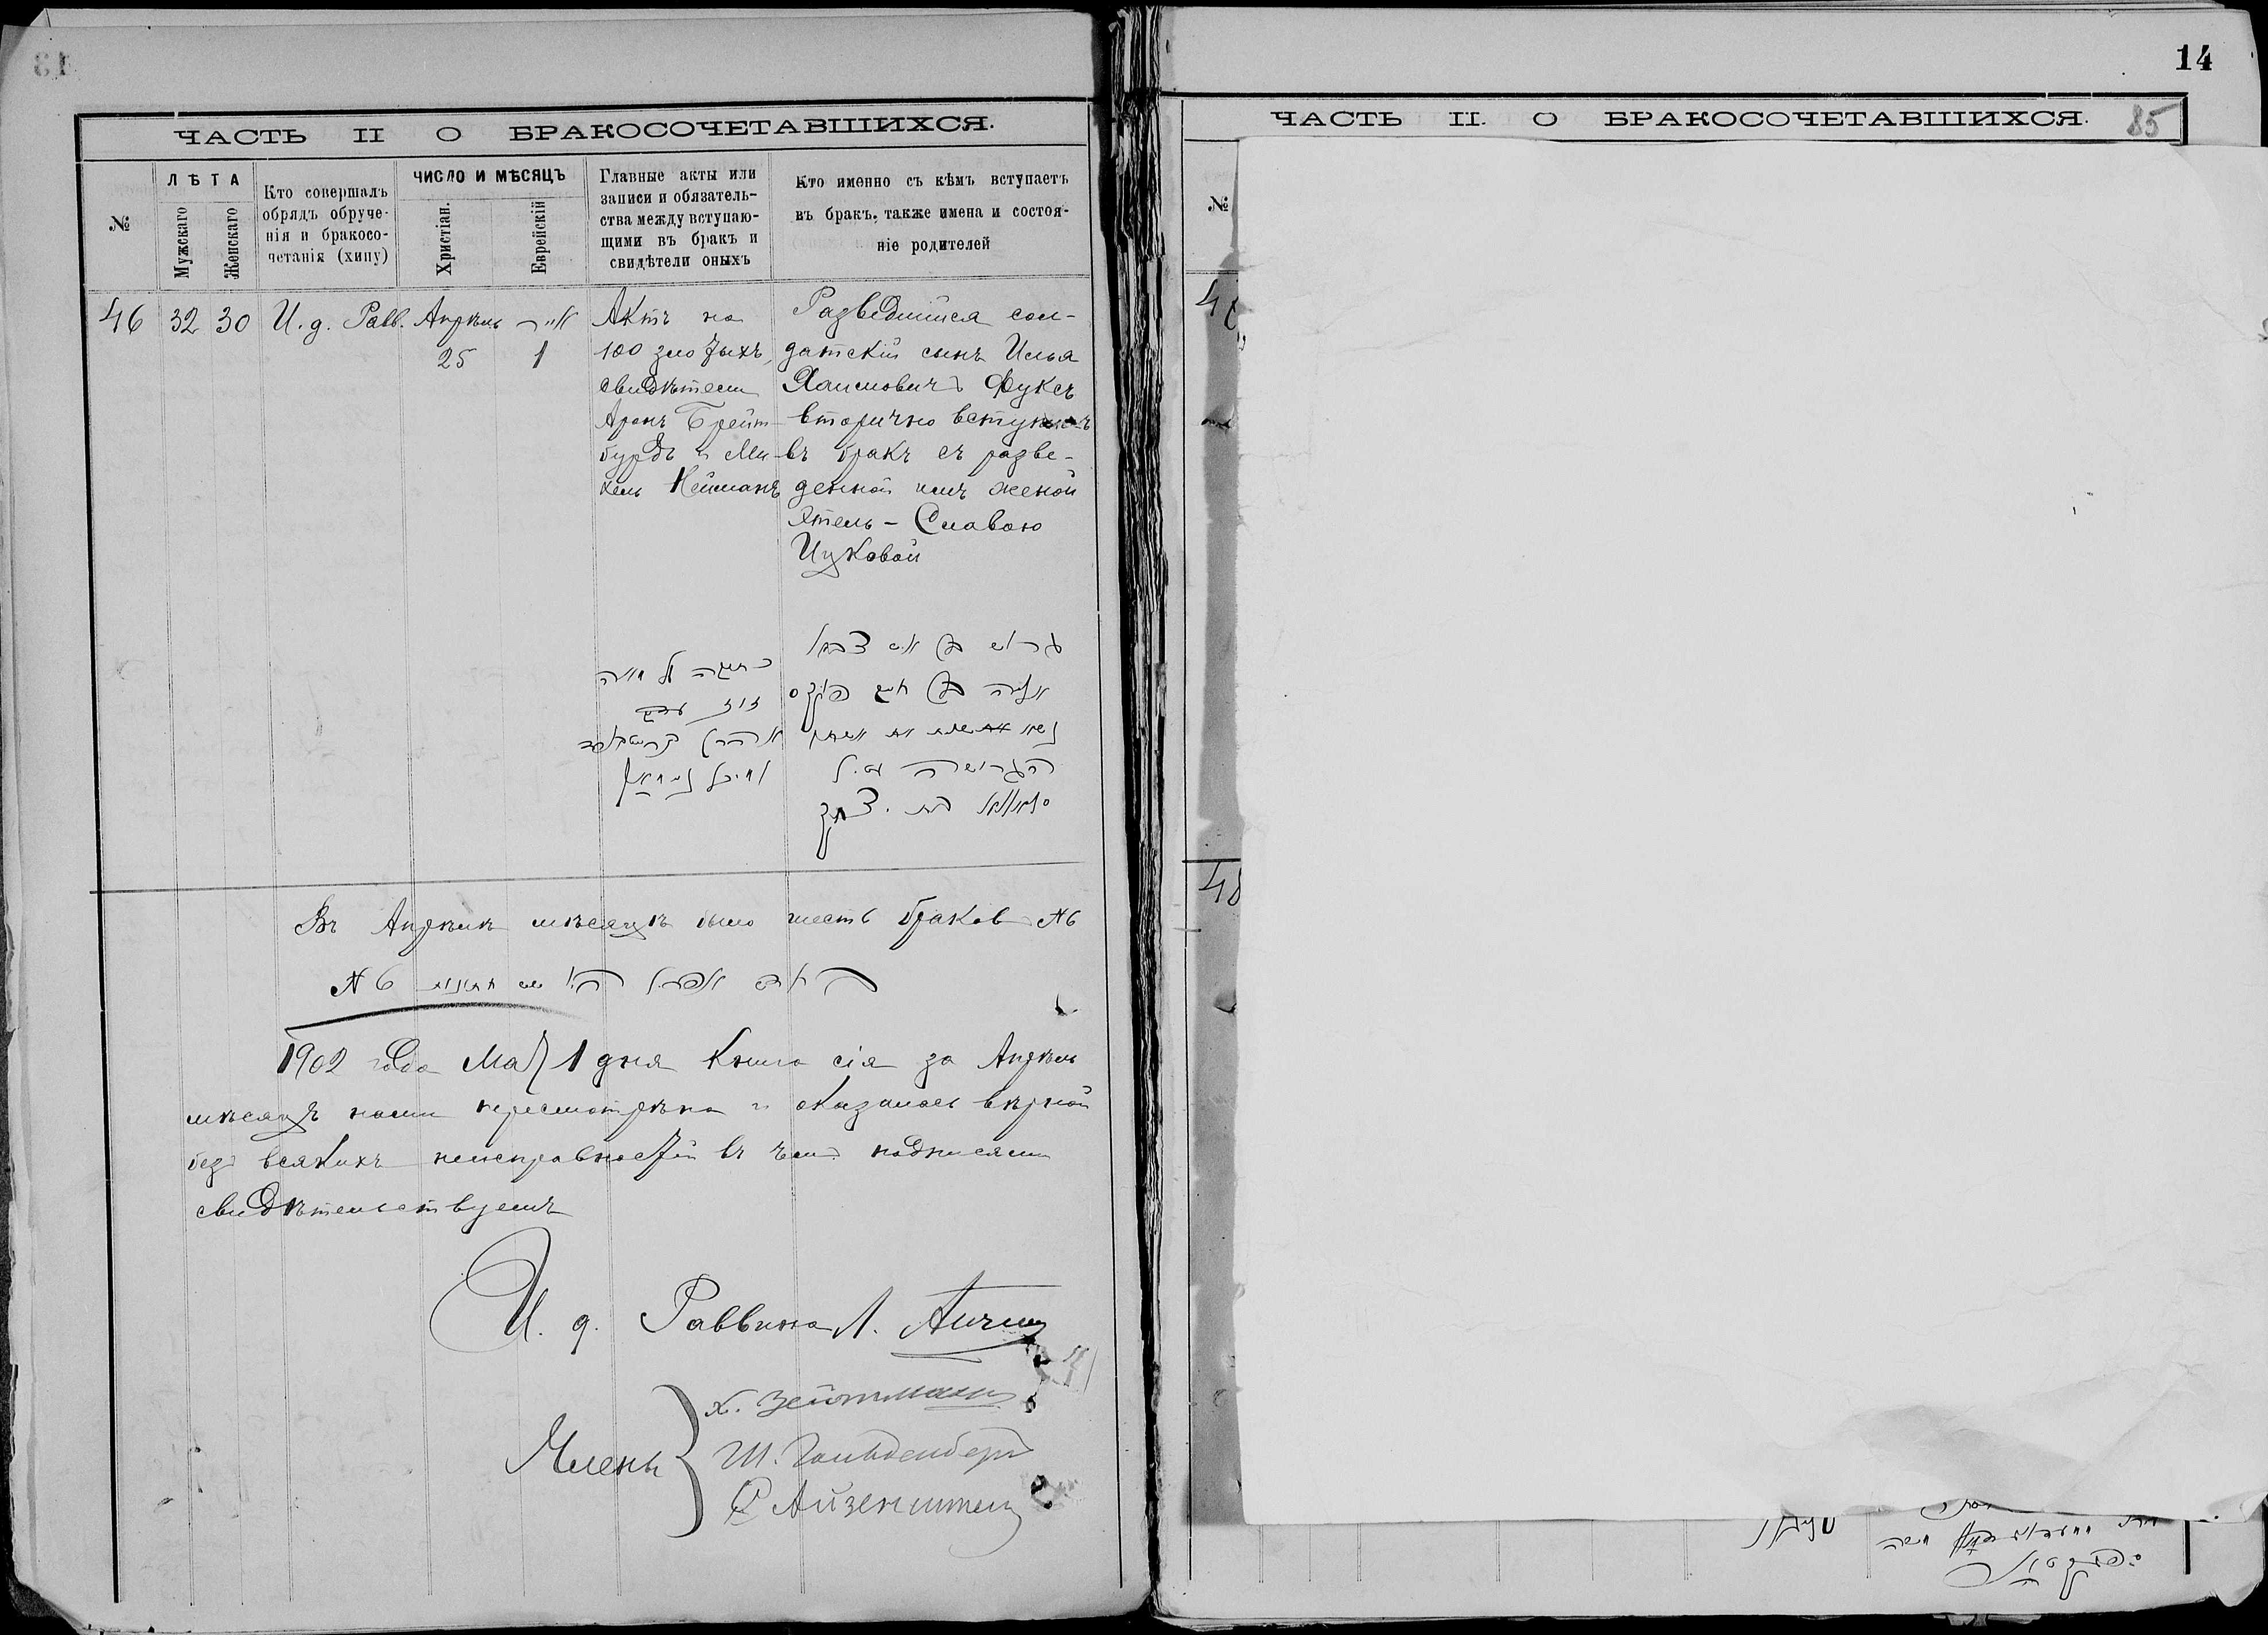 14
ЧАСТЬ II О БРАКОСОЧЕТАВШИХСЯ.
№
ЛѢТА
Мужскаго
Женскаго
Кто совершалъ
обрядъ обруче-
нія и бракосо-
четанія (хипу)
ЧИСЛО И МѢСЯЦЪ
Христіан.
Еврейскій
Главные акты или
записи и обязатель-
ства между вступаю-
щими въ бракъ и
свидѣтели оныхъ
Кто именно съ кѣмъ вступаетъ
въ бракъ, также имена и состоя-
ніе родителей
46
32
30
И. д. Равв.
Апрѣль
25
אייר
1
Актъ на
100 злотыхъ,
свидѣтели
Аронъ Брейт-
бурдъ и Ми-
хель Нейманъ
Разведшійся сол-
датскій сынъ Илья
Хаимовичъ Фуксъ
вторично вступилъ
въ бракъ съ разве-
денной имъ женой
Этель-Славою
Ицковой
זוז
אהרן
גרוש בן איש צבא
אליה בן חיים פוקס
נשא את אשתו
הגרושה עטיל
סלאווא בת יצחק
Въ Апрѣлѣ мѣсяцѣ было шесть браков №6
בחודש אפריל היו שש חתונות №6
1902 года Мая 1 дня Книга сія за Апрѣль
мѣсяцъ нами пересмотрѣна и оказалась вѣрной
безъ всякихъ неисправностей въ чемъ подписями
свидѣтельствуемъ
И. д. Раввина Л.
Члены
Х. Зейтман
Ш. Гольденберг
Айзенштейн
ЧАСТЬ II. О БРАКОСОЧЕТАВШИХСЯ.
85
№